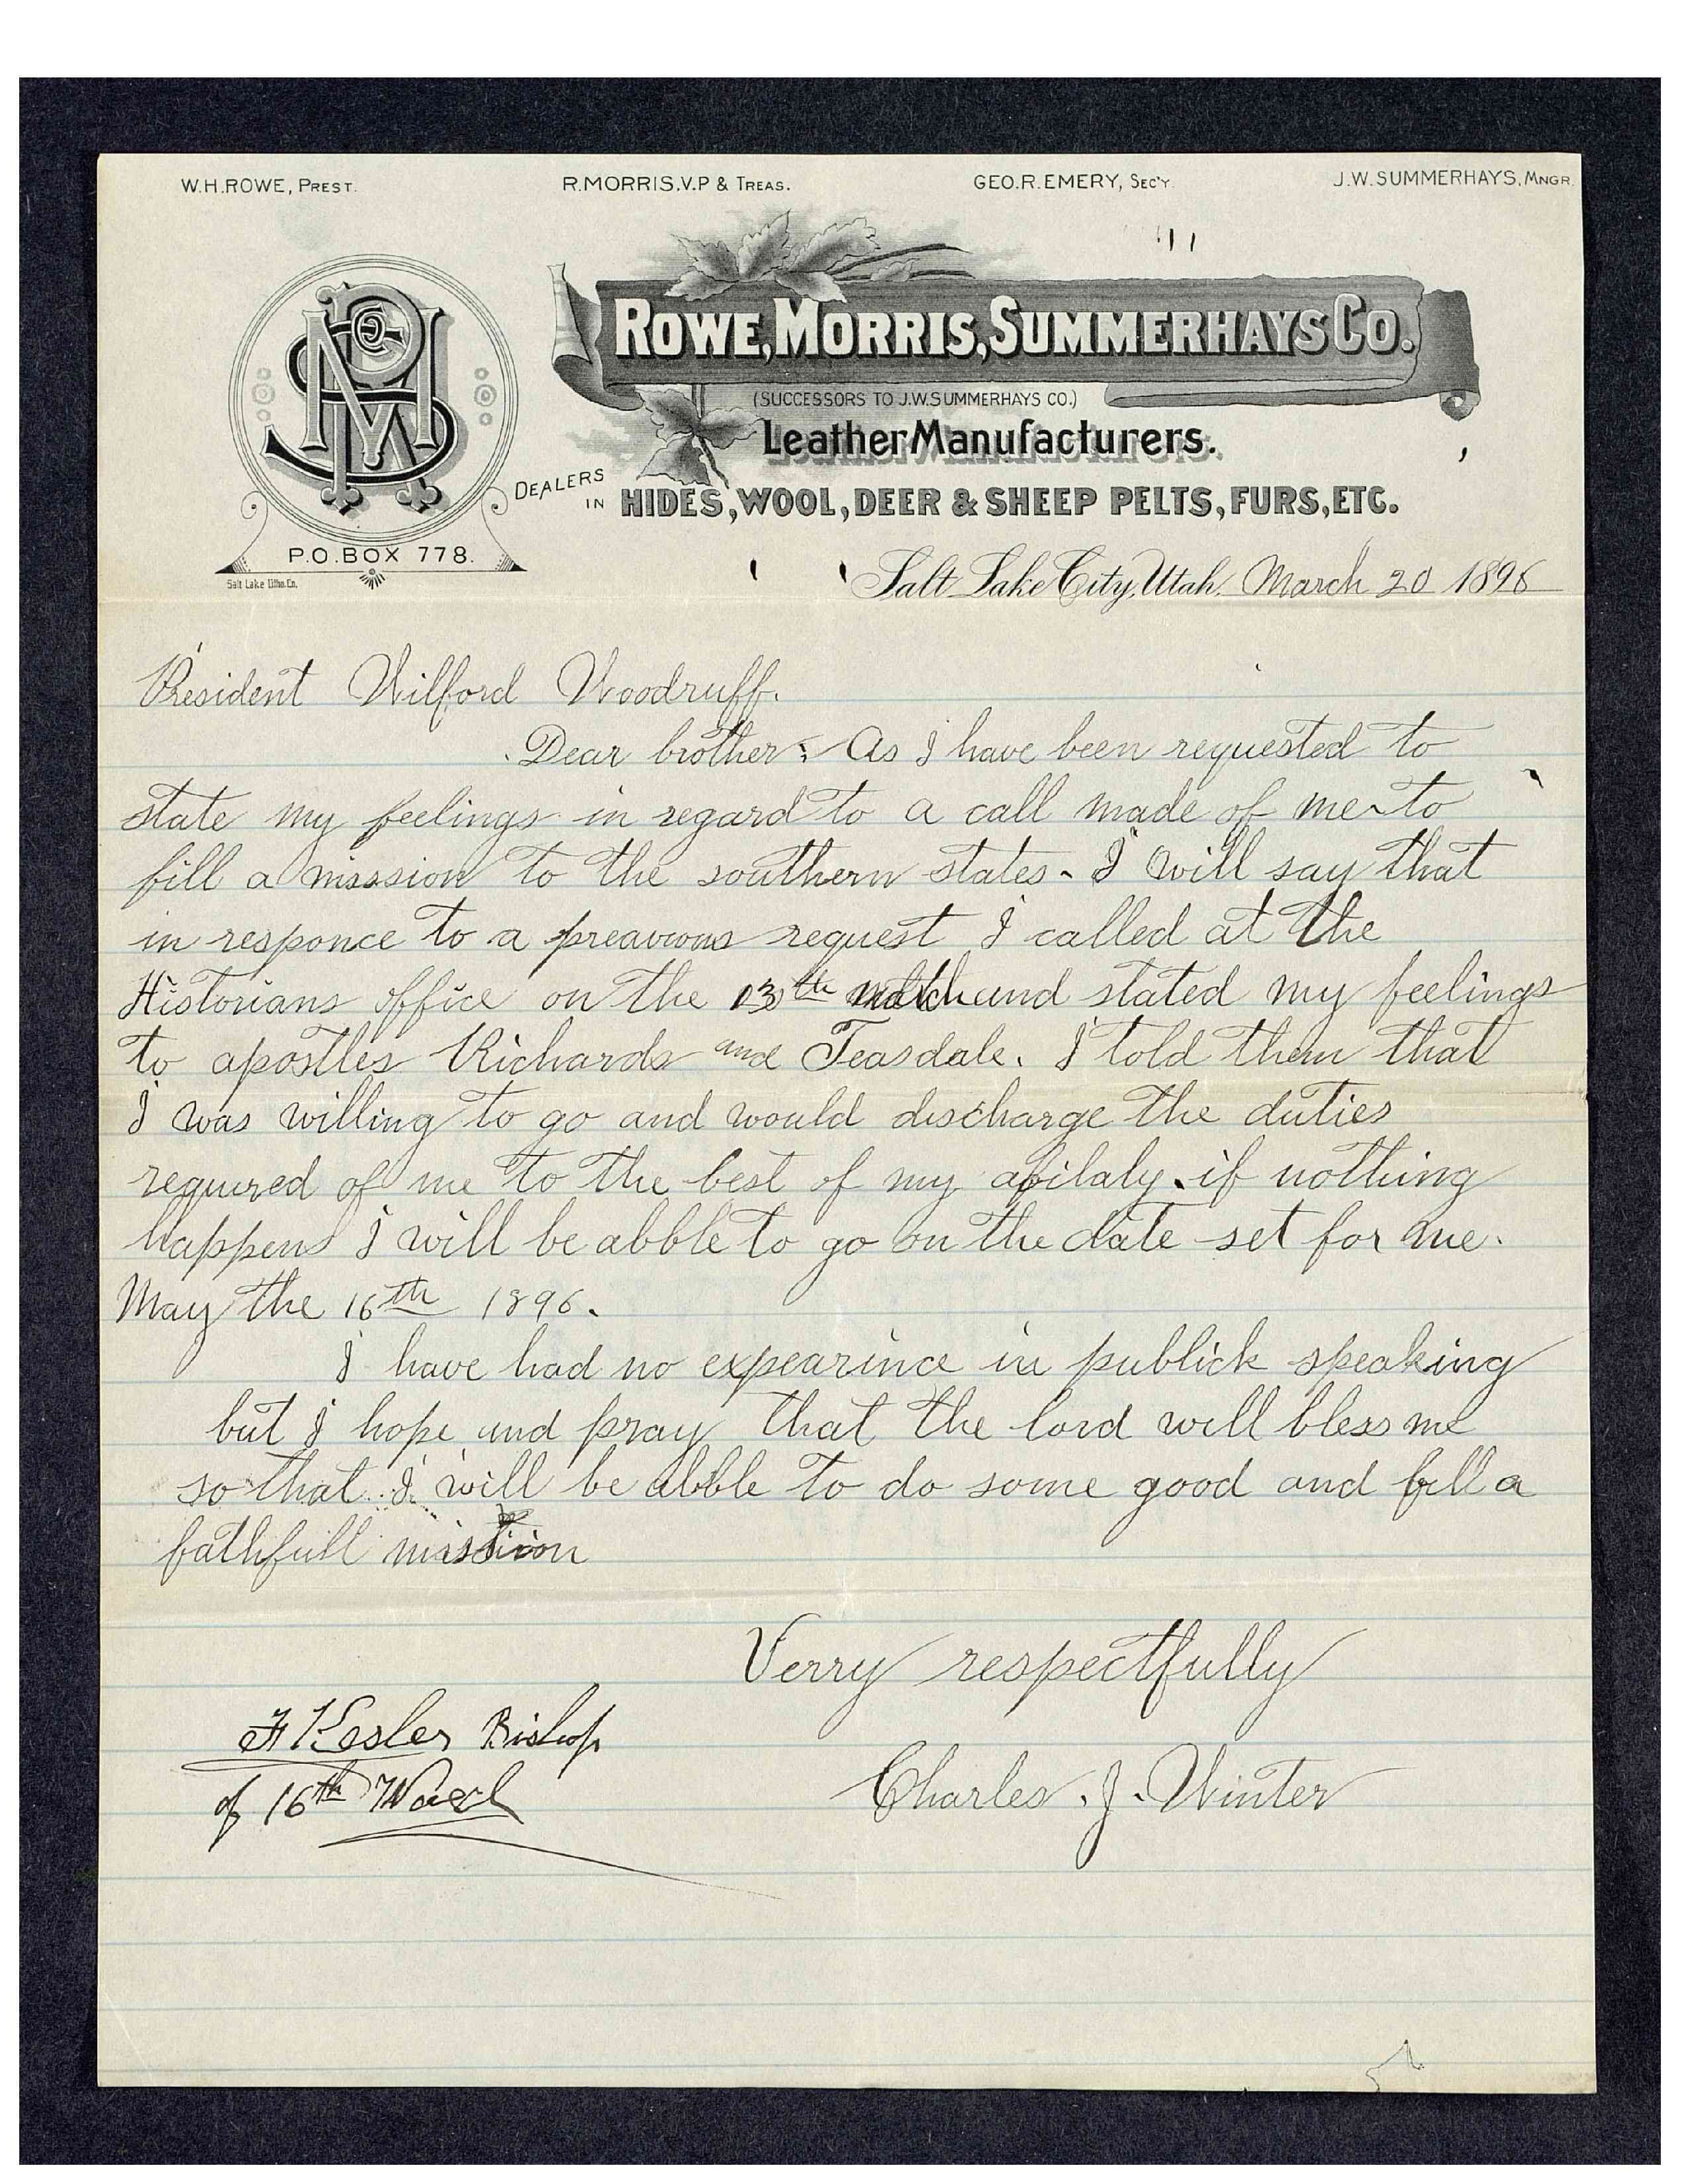 W.H.ROWE, PREST. R.MORRIS.V.P & TREAS. GEO.R.EMERY, SEC'Y. J.W.SUMMERHAYS, MNGR.
ROWE, MORRIS, SUMMERHAYS CO.
(SUCCESSORS TO J.W.SUMMERHAYS CO.)
Leather Manufacturers.
DEALERS IN HIDES, WOOL, DEER & SHEEP PELTS, FURS, ETC.
P.O. BOX 778.
Salt Lake Litho. Co.
Salt Lake City, Utah, March 20 1896
President Wilford Woodruff.
Dear brother; As I have been requested to
state my feelings in regard to a call made of me to
fill a misssion to the southern states - I will say that
in responce to a preavious request I called at the
Historians office on the 13th march and stated my feelings
to apostles Richards and Teasdale. I told them that
I was willing to go and would discharge the duties
requred of me to the best of my abilaly. if nothing
happens I will be abble to go on the date set for me.
May the 16th 1896.
I have had no expearince in publick speaking
but I hope and pray that the lord will bless me
so that I will be abble to do some good and fill a
fathfull mission
Verry respectfully
Charles. J. Winter
F Kesler Bishop
of 16th Ward